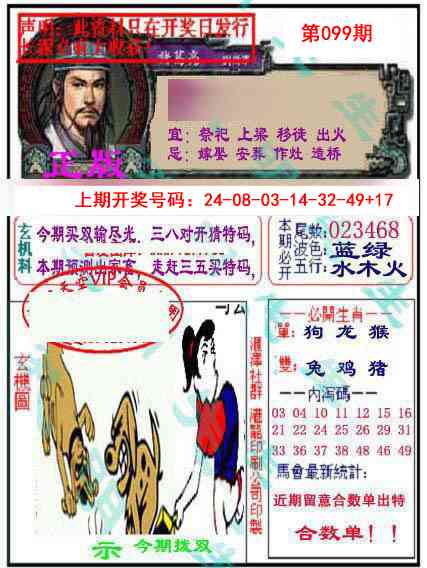 声明：此资料只在开奖日发行
第099期
诸葛亮
正版
宜：祭祀 上梁 移徒 出火
忌：嫁娶 安葬 作灶 造桥
上期开奖号码：24-08-03-14-32-49+17
玄机料
今期买双输尽光，三八对开猜特码，
本期预测出家客，走赶三五买特码，
本期必开
尾数:023468
波色:蓝绿
五行:水木火
天空VIP会员
玄機圖
濠澤社群 港龍印刷公司印製
示 今期拨双
必開生肖
單: 狗 龙 猴
雙: 兔 鸡 猪
内泻碼
03 04 10 11 12 15 16
21 22 24 25 26 29 31
33 38 45 46 47 48 49
馬會最新統計:
近期留意合数单出特
合数单！！